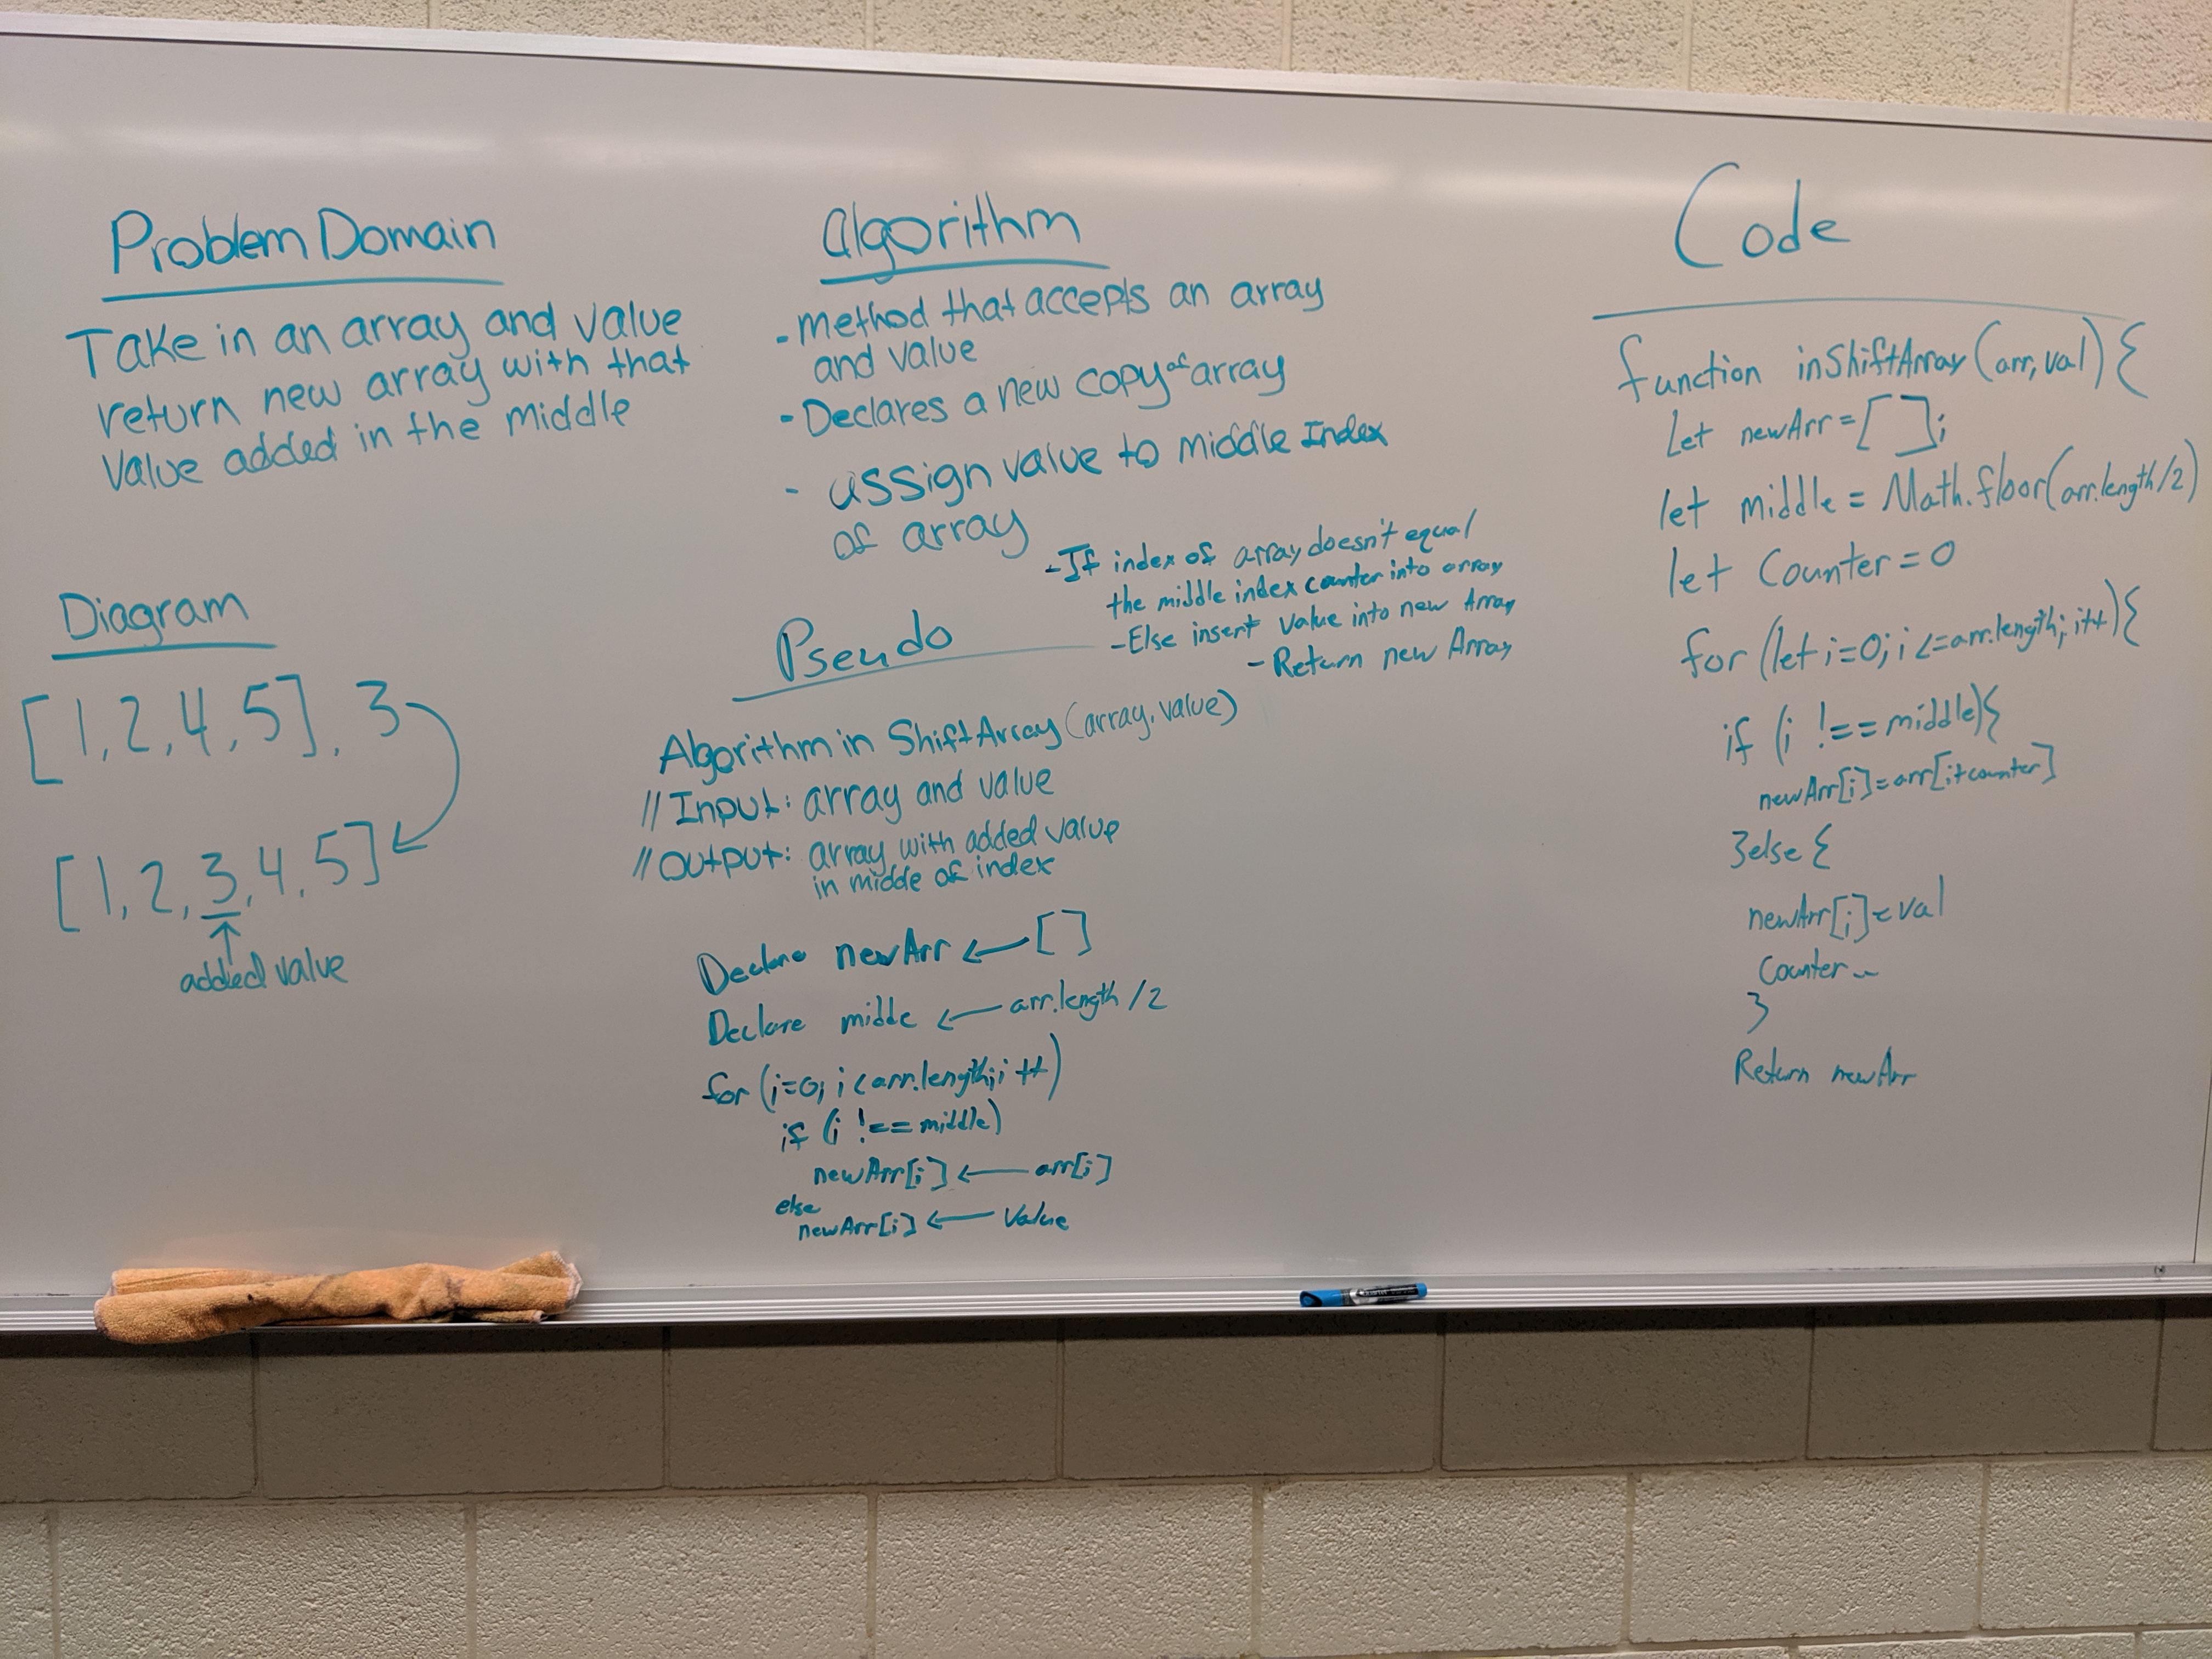 Problem Domain
Take in an array and value
return new array with that
value added in the middle
Diagram
[1,2,4,5], 3
[1,2,3,4,5]
added value
Algorithm
- method that accepts an array
and value
- Declares a new copy of array
- assign value to middle Index
of array
- If index of array doesn't equal
the middle index counter into array
- Else insert value into new Array
- Return new Array
Pseudo
Algorithm in ShiftArray (array, value)
// Input: array and value
// Output: array with added value
in midde of index
Declare newArr ← []
Declare midde ← arr.length /2
for (i=0; i < arr.length; i++)
if (i !== middle)
newArr[i] ← arr[i]
else
newArr[i] ← Value
Code
function inShiftArray (arr, val) {
Let newArr = [];
let middle = Math.floor(arr.length/2)
let Counter = 0
for (let i=0; i <= arr.length; i++) {
if (i !== middle) {
newArr[i] = arr[i+counter]
}else {
newArr[i] = val
Counter--
}
Return newArr